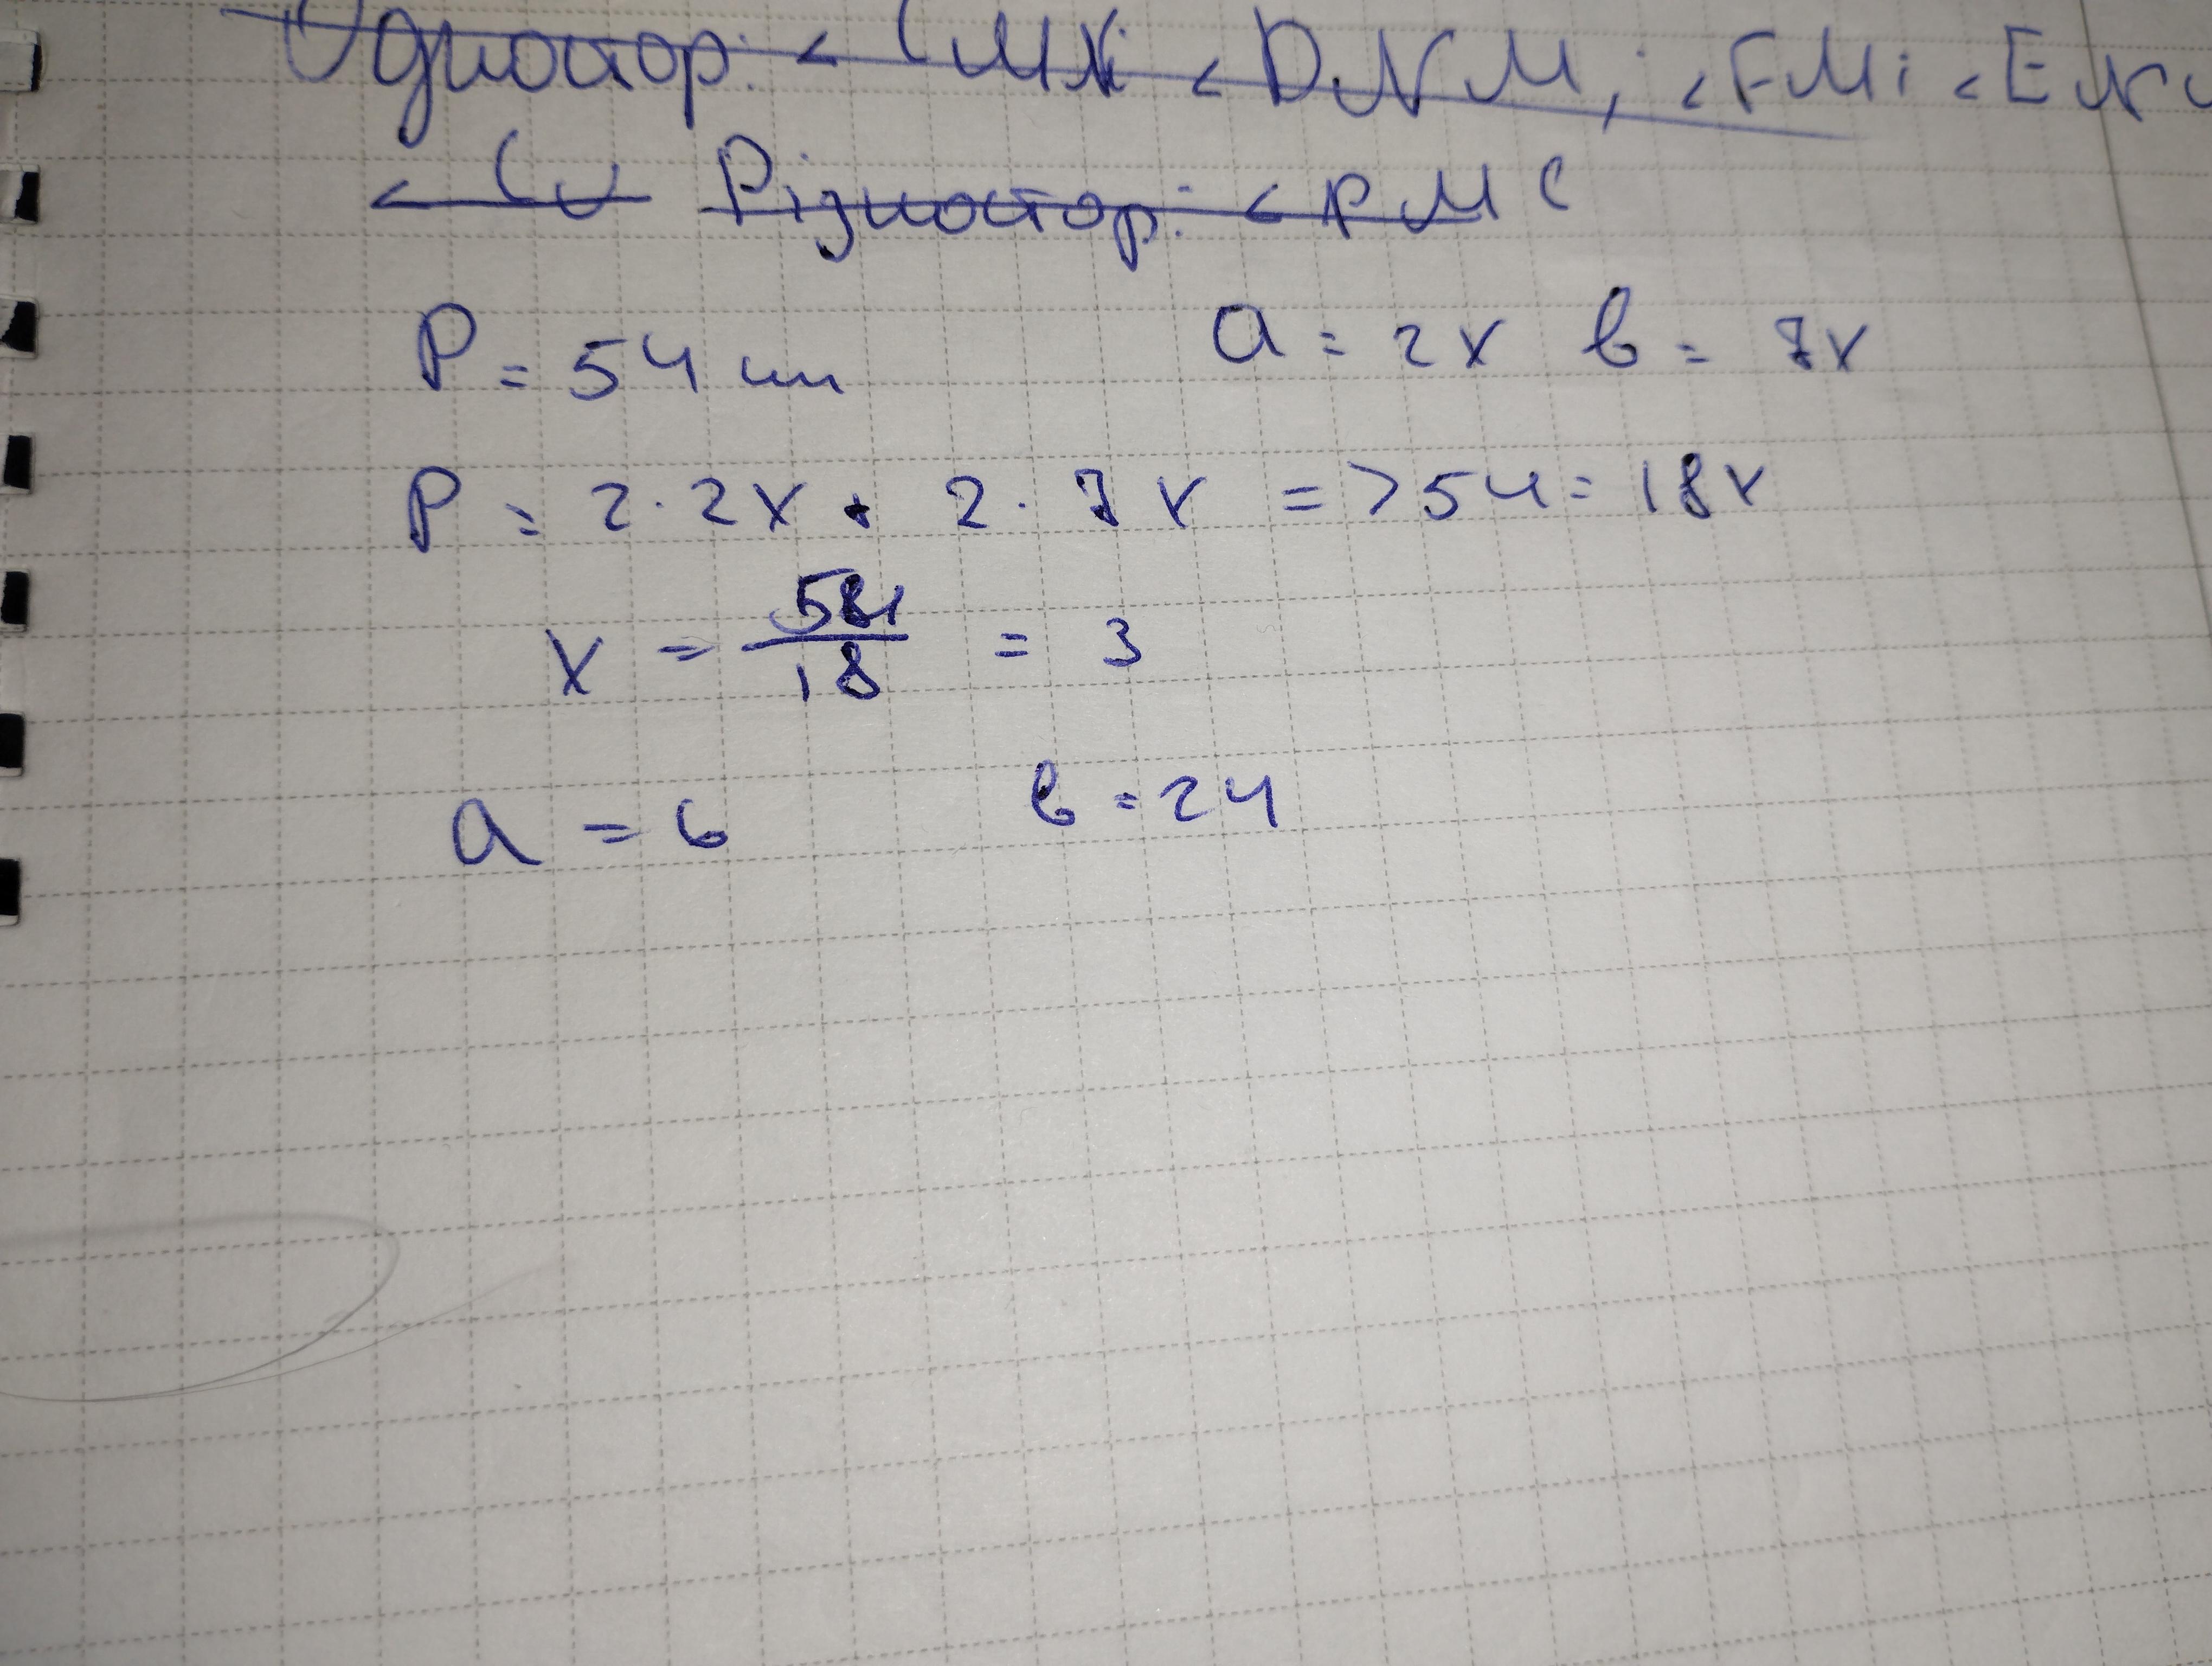 Одностор: < CMN; < DNM; < FM; < EN
< C Різностор: < PMC
P = 54 см a = 2x b = 7x
P = 2·2x + 2·7x => 54 = 18x
x = 54/18 = 3
a = 6 b = 24